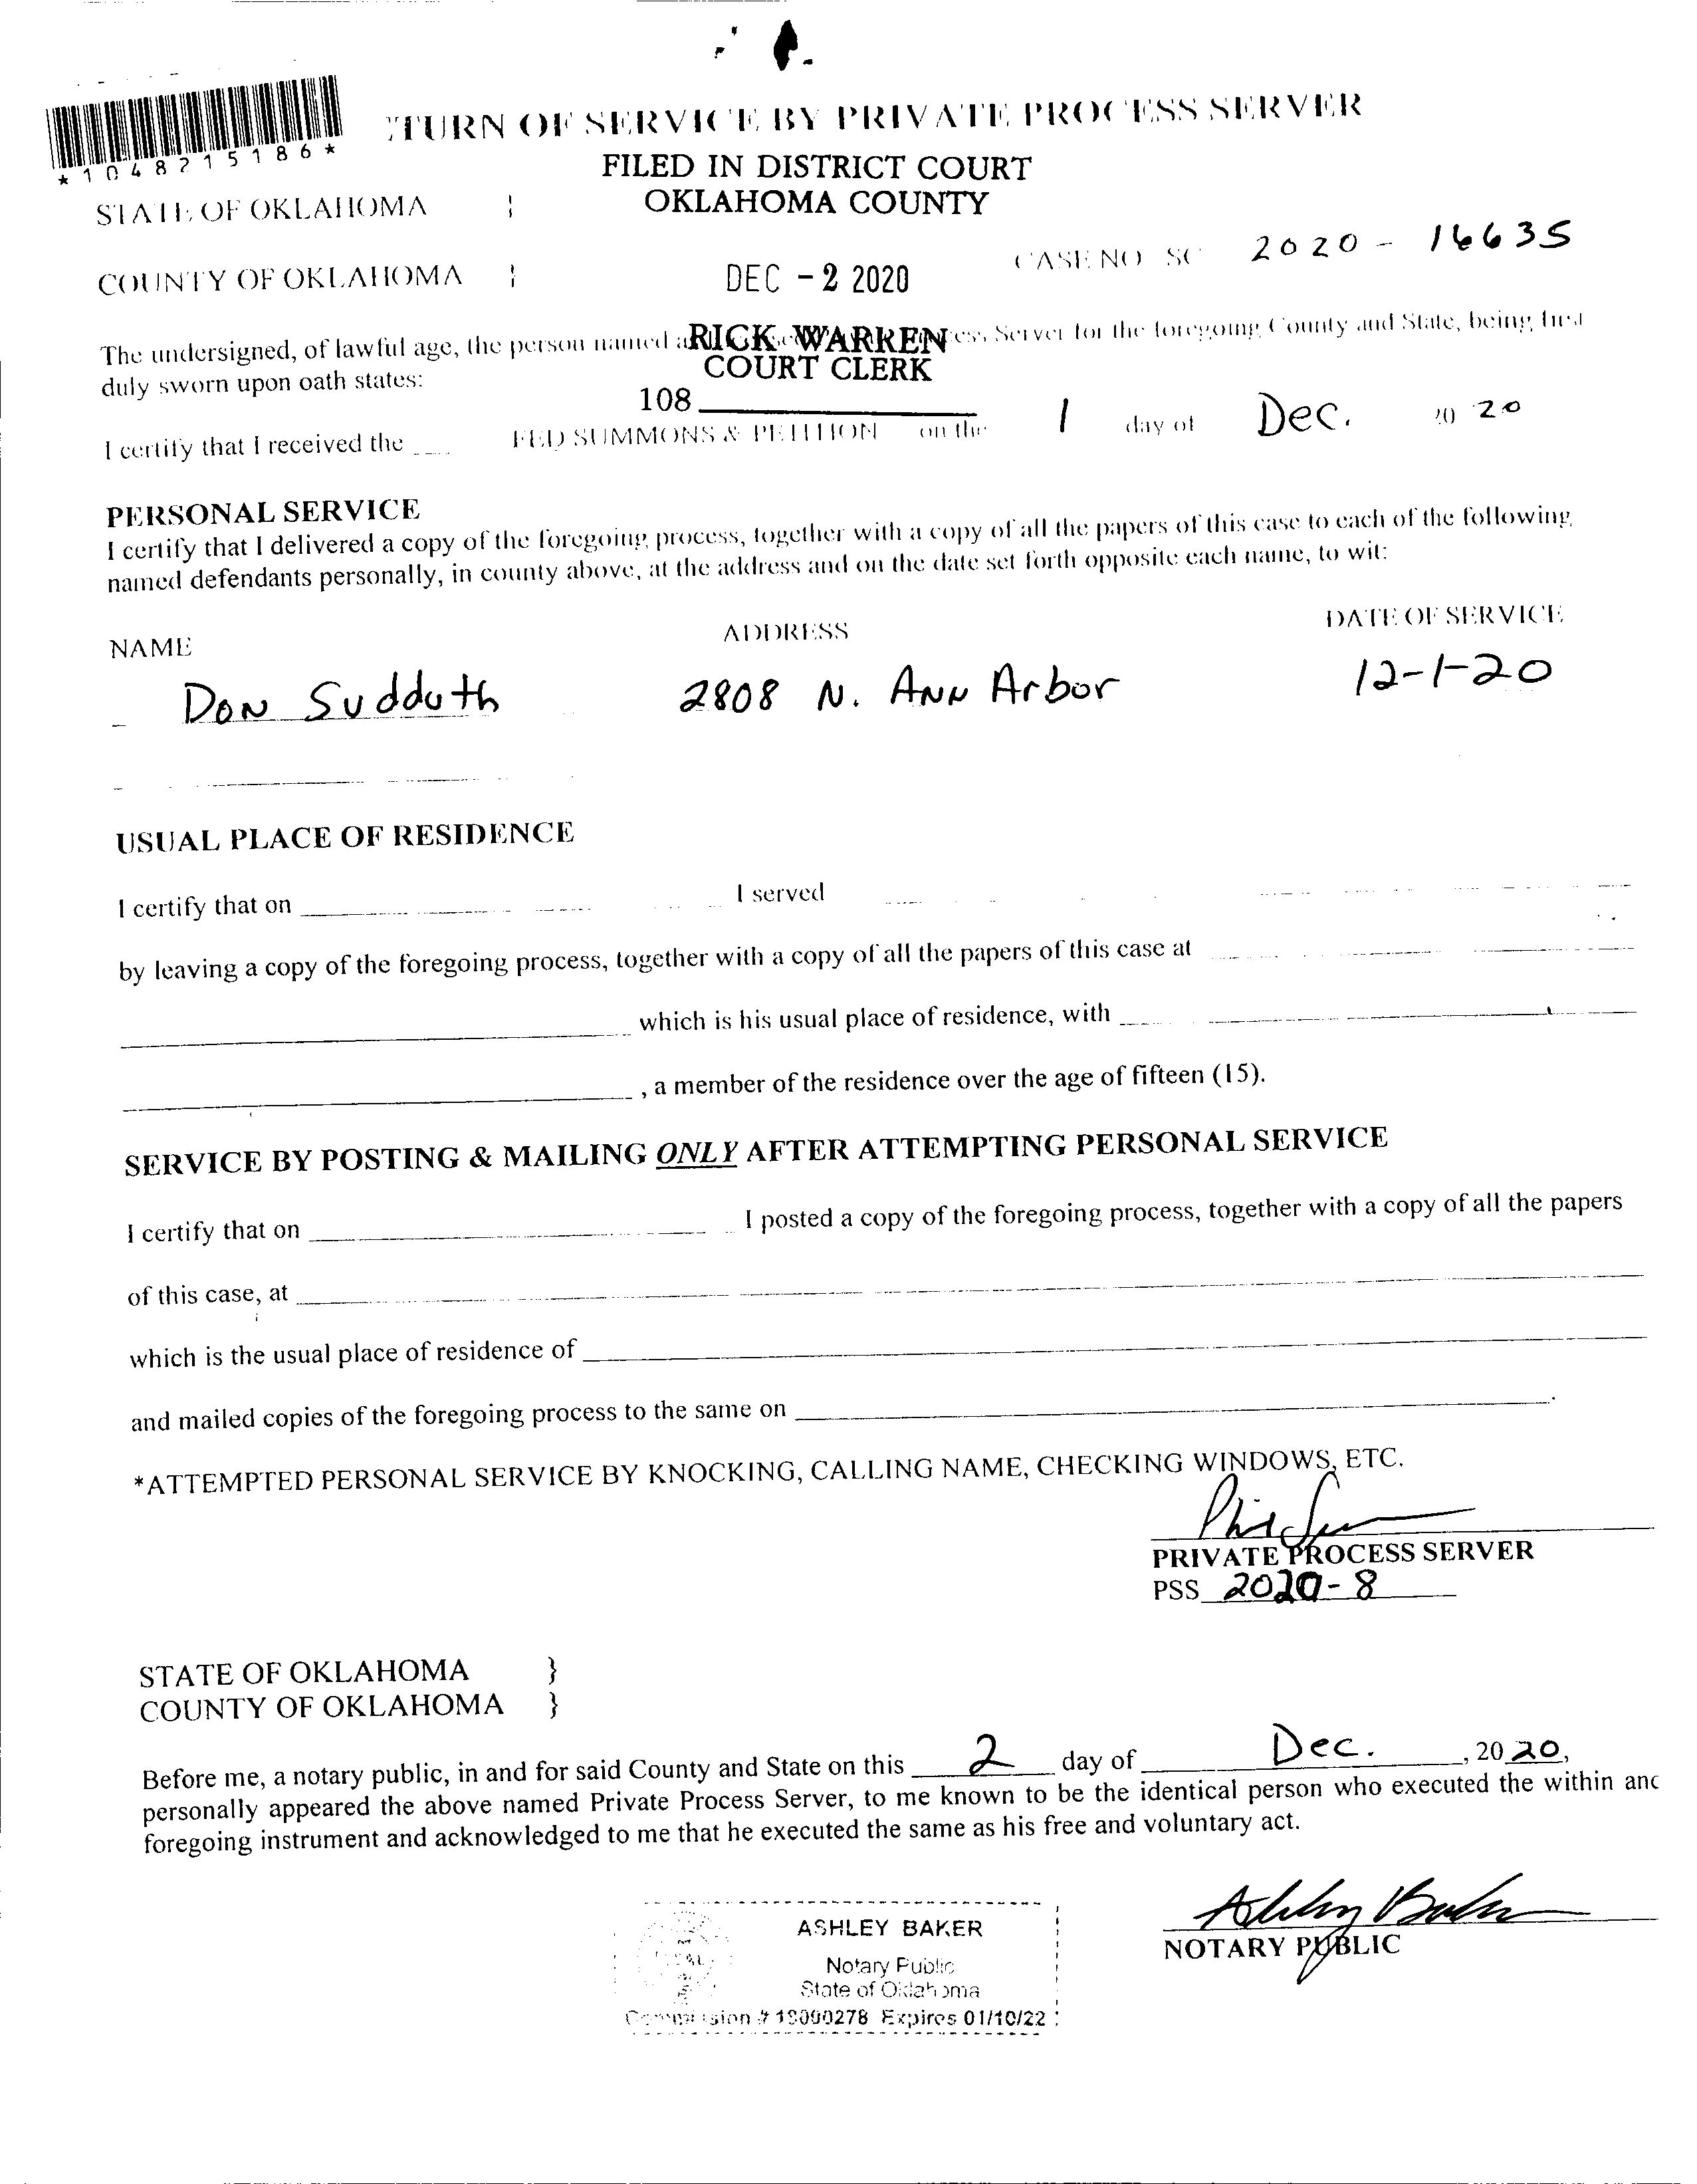 *1048215186*
TURN OF SERVICE BY PRIVATE PROCESS SERVER
FILED IN DISTRICT COURT
OKLAHOMA COUNTY
STATE OF OKLAHOMA }
CASE NO SC 2020 - 16635
COUNTY OF OKLAHOMA }
DEC - 2 2020
The undersigned, of lawful age, the person named Server for the foregoing County and State, being first
RICK WARREN
COURT CLERK
duly sworn upon oath states:
108
I certify that I received the FED SUMMONS & PETITION on the 1 day of Dec. 20 20
PERSONAL SERVICE
I certify that I delivered a copy of the foregoing process, together with a copy of all the papers of this case to each of the following
named defendants personally, in county above, at the address and on the date set forth opposite each name, to wit:
NAME ADDRESS DATE OF SERVICE
Don Sudduth 2808 N. Ann Arbor 12-1-20
USUAL PLACE OF RESIDENCE
I certify that on I served
by leaving a copy of the foregoing process, together with a copy of all the papers of this case at
which is his usual place of residence, with
, a member of the residence over the age of fifteen (15).
SERVICE BY POSTING & MAILING ONLY AFTER ATTEMPTING PERSONAL SERVICE
I certify that on I posted a copy of the foregoing process, together with a copy of all the papers
of this case, at
which is the usual place of residence of
and mailed copies of the foregoing process to the same on .
*ATTEMPTED PERSONAL SERVICE BY KNOCKING, CALLING NAME, CHECKING WINDOWS, ETC.
PRIVATE PROCESS SERVER
PSS 2020-8
STATE OF OKLAHOMA }
COUNTY OF OKLAHOMA }
Before me, a notary public, in and for said County and State on this 2 day of Dec. , 20 20,
personally appeared the above named Private Process Server, to me known to be the identical person who executed the within anc
foregoing instrument and acknowledged to me that he executed the same as his free and voluntary act.
Ashley Baker
NOTARY PUBLIC
ASHLEY BAKER
Notary Public
State of Oklahoma
Commission # Expires 01/10/22